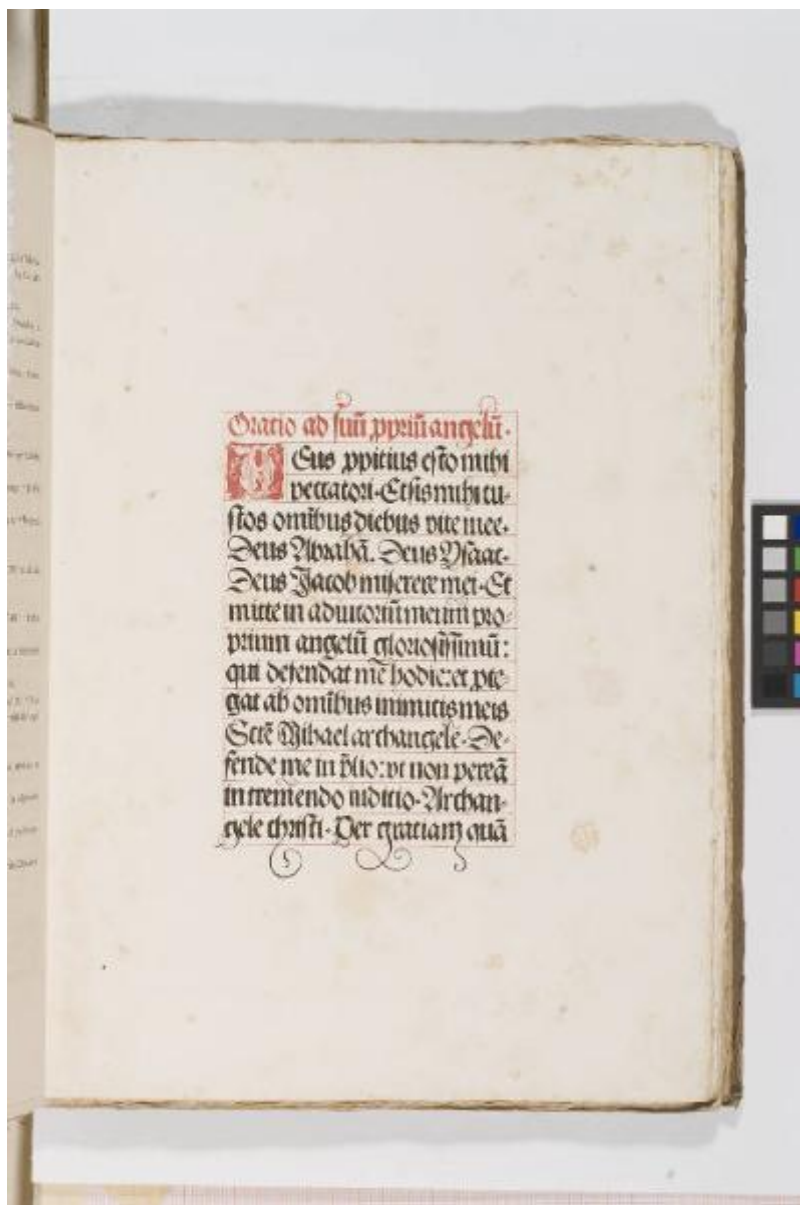 Oratio ad suũ ꝓpriũ angelũ.
DEus ꝓpitius esto mihi
peccatori. Et sis mihi cu-
stos omĩbus diebus vite mee.
Deus Abrahã. Deus Ysaac.
Deus Jacob miserere mei. Et
mitte in adiutoriũ meum pro-
prium angelũ gloriosissimũ:
qui defendat me hodie: et ꝓte-
gat ab omĩbus inimicis meis
Sctẽ Mihael archangele. De-
fende me in p̃lio: vt non pereã
in tremendo iudicio. Archan-
gele christi. Per gratiam quã